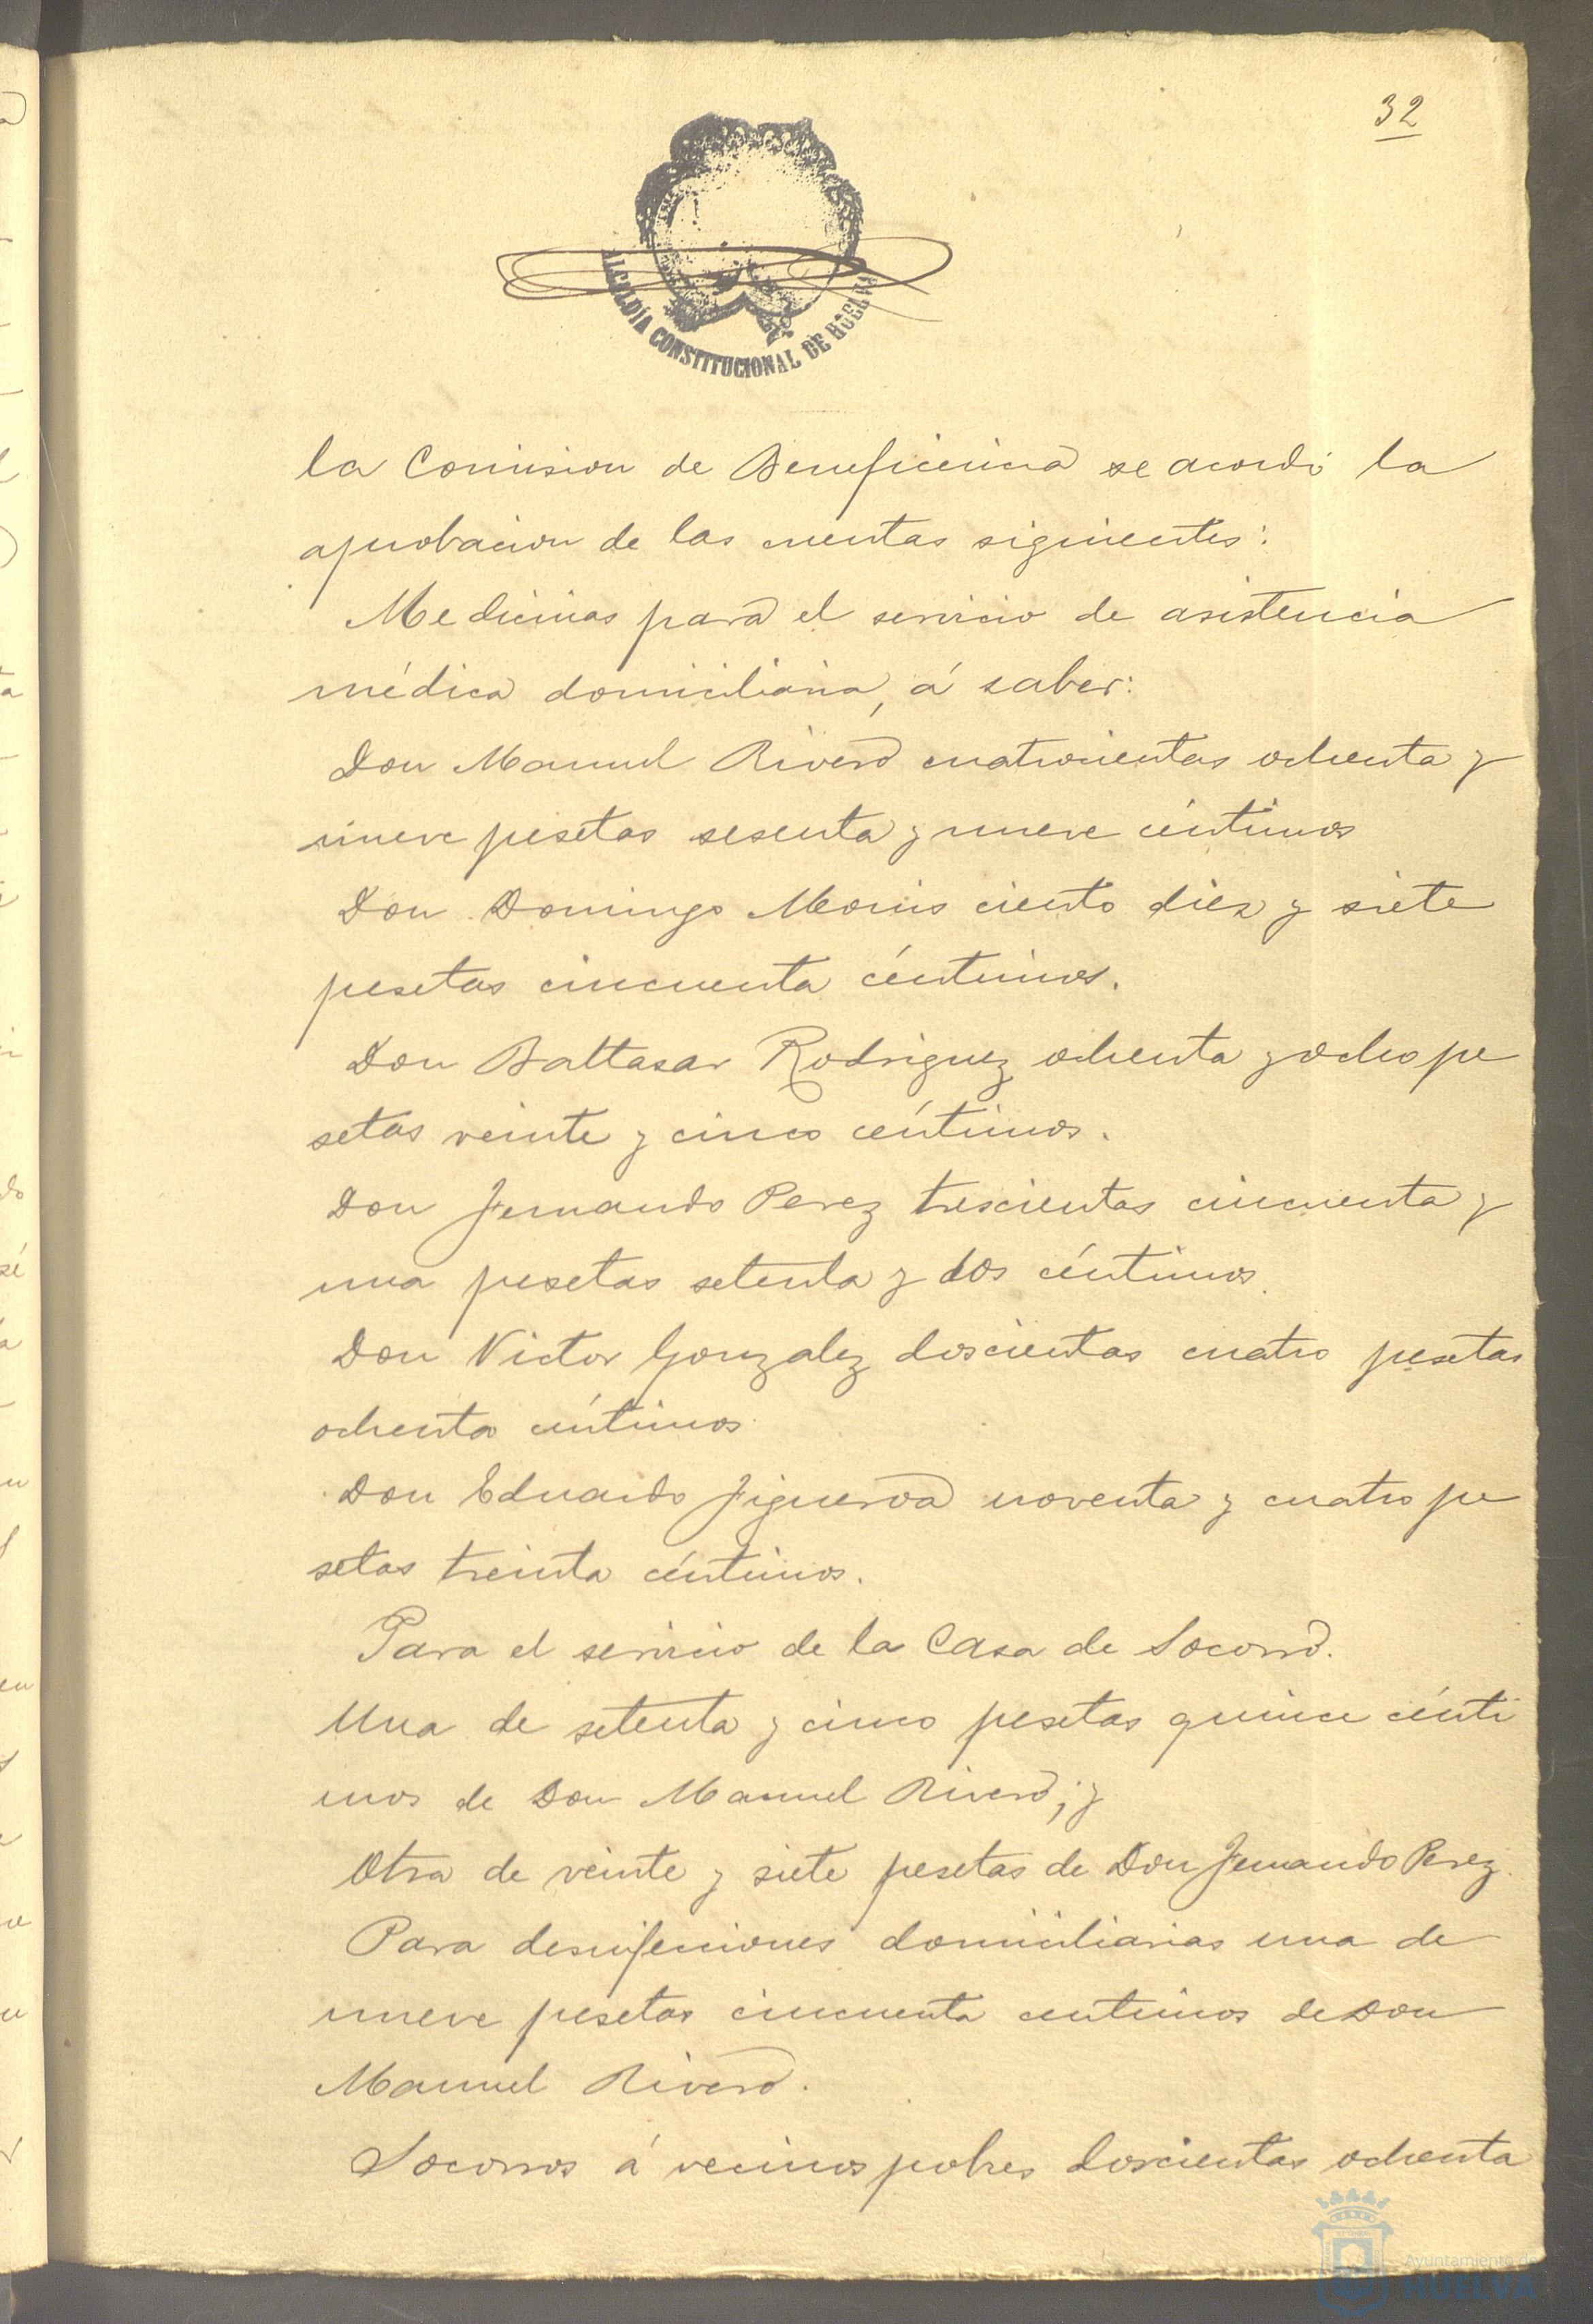 32
ALCALDÍA CONSTITUCIONAL DE HUELVA
la Comision de Beneficencia se acordó la
aprobacion de las cuentas siguientes:
Medicinas para el servicio de asistencia
médica domiciliaria, á saber:
Don Manuel Rivero cuatrocientas ochenta y
nueve pesetas sesenta y nueve céntimos
Don Domingo Monis ciento diez y siete
pesetas cincuenta céntimos.
Don Baltasar Rodriguez ochenta y ocho pe
setas veinte y cinco céntimos.
Don Fernando Perez trescientas cincuenta y
una pesetas setenta y dos céntimos.
Don Victor Gonzalez doscientas cuatro pesetas
ochenta céntimos.
Don Eduardo Figueroa noventa y cuatro pe
setas treinta céntimos.
Para el servicio de la Casa de Socorro.
Una de setenta y cinco pesetas quince cénti
mos de Don Manuel Rivero; y
Otra de veinte y siete pesetas de Don Fernando Perez.
Para desinfecciones domiciliarias una de
nueve pesetas cincuenta centimos de Don
Manuel Rivero.
Socorros á vecinos pobres doscientas ochenta
Ayuntamiento de
HUELVA